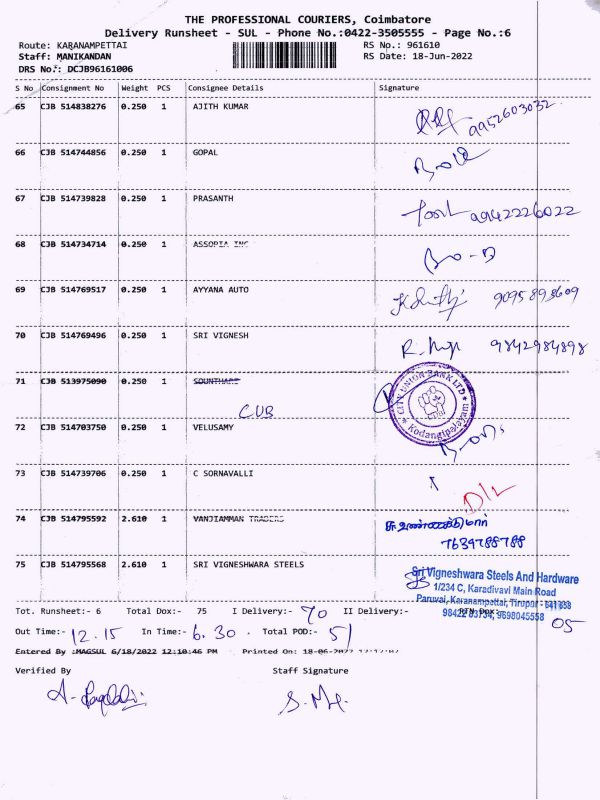 THE PROFESSIONAL COURIERS, Coimbatore
Delivery Runsheet - SUL - Phone No.:0422-3505555 - Page No.:6
Route: KARANAMPETTAI RS No.: 961610
Staff: MANIKANDAN RS Date: 18-Jun-2022
DRS No.: DCJB96161006
S No Consignment No Weight PCS Consignee Details Signature
65 CJB 514838276 0.250 1 AJITH KUMAR 9952603032
66 CJB 514744856 0.250 1 GOPAL
67 CJB 514739828 0.250 1 PRASANTH 9942226022
68 CJB 514734714 0.250 1 ASSOPIA INC
69 CJB 514769517 0.250 1 AYYANA AUTO 9095893609
70 CJB 514769496 0.250 1 SRI VIGNESH 9842984898
71 CJB 513975090 0.250 1 SOUNTHARI
CUB
CITY UNION BANK LTD
Kodangipalayam
72 CJB 514703750 0.250 1 VELUSAMY
73 CJB 514739706 0.250 1 C SORNAVALLI
D/L
74 CJB 514795592 2.610 1 VANJIAMMAN TRADERS
7639788788
75 CJB 514795568 2.610 1 SRI VIGNESHWARA STEELS
Sri Vigneshwara Steels And Hardware
1/234 C, Karadivavi Main Road
Paruvai, Karanampettai, Tirupur - 641 658
98422 03734, 9698045558
Tot. Runsheet:- 6 Total Dox:- 75 I Delivery:- 70 II Delivery:- RTN Dox:- 05
Out Time:- 12.15 In Time:- 6.30 Total POD:- 51
Entered By :MAGSUL 6/18/2022 12:10:46 PM Printed On: 18-06-2022
Verified By Staff Signature